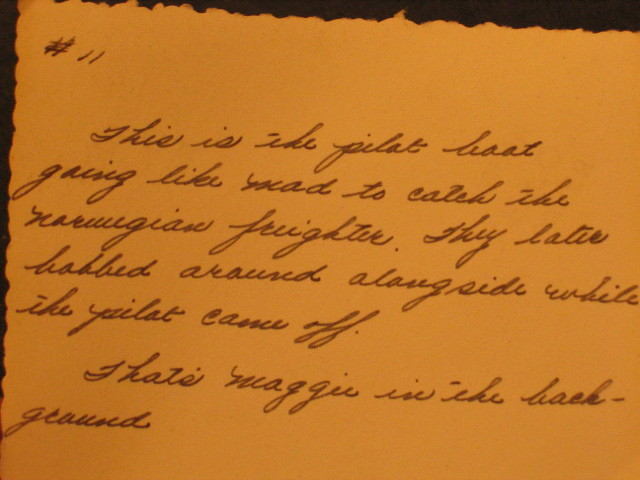 # 11
This is the pilot boat
going like mad to catch the
norwegian freighter. They later
bobbed around alongside while
the pilot came off.
Thats maggie in the back-
ground